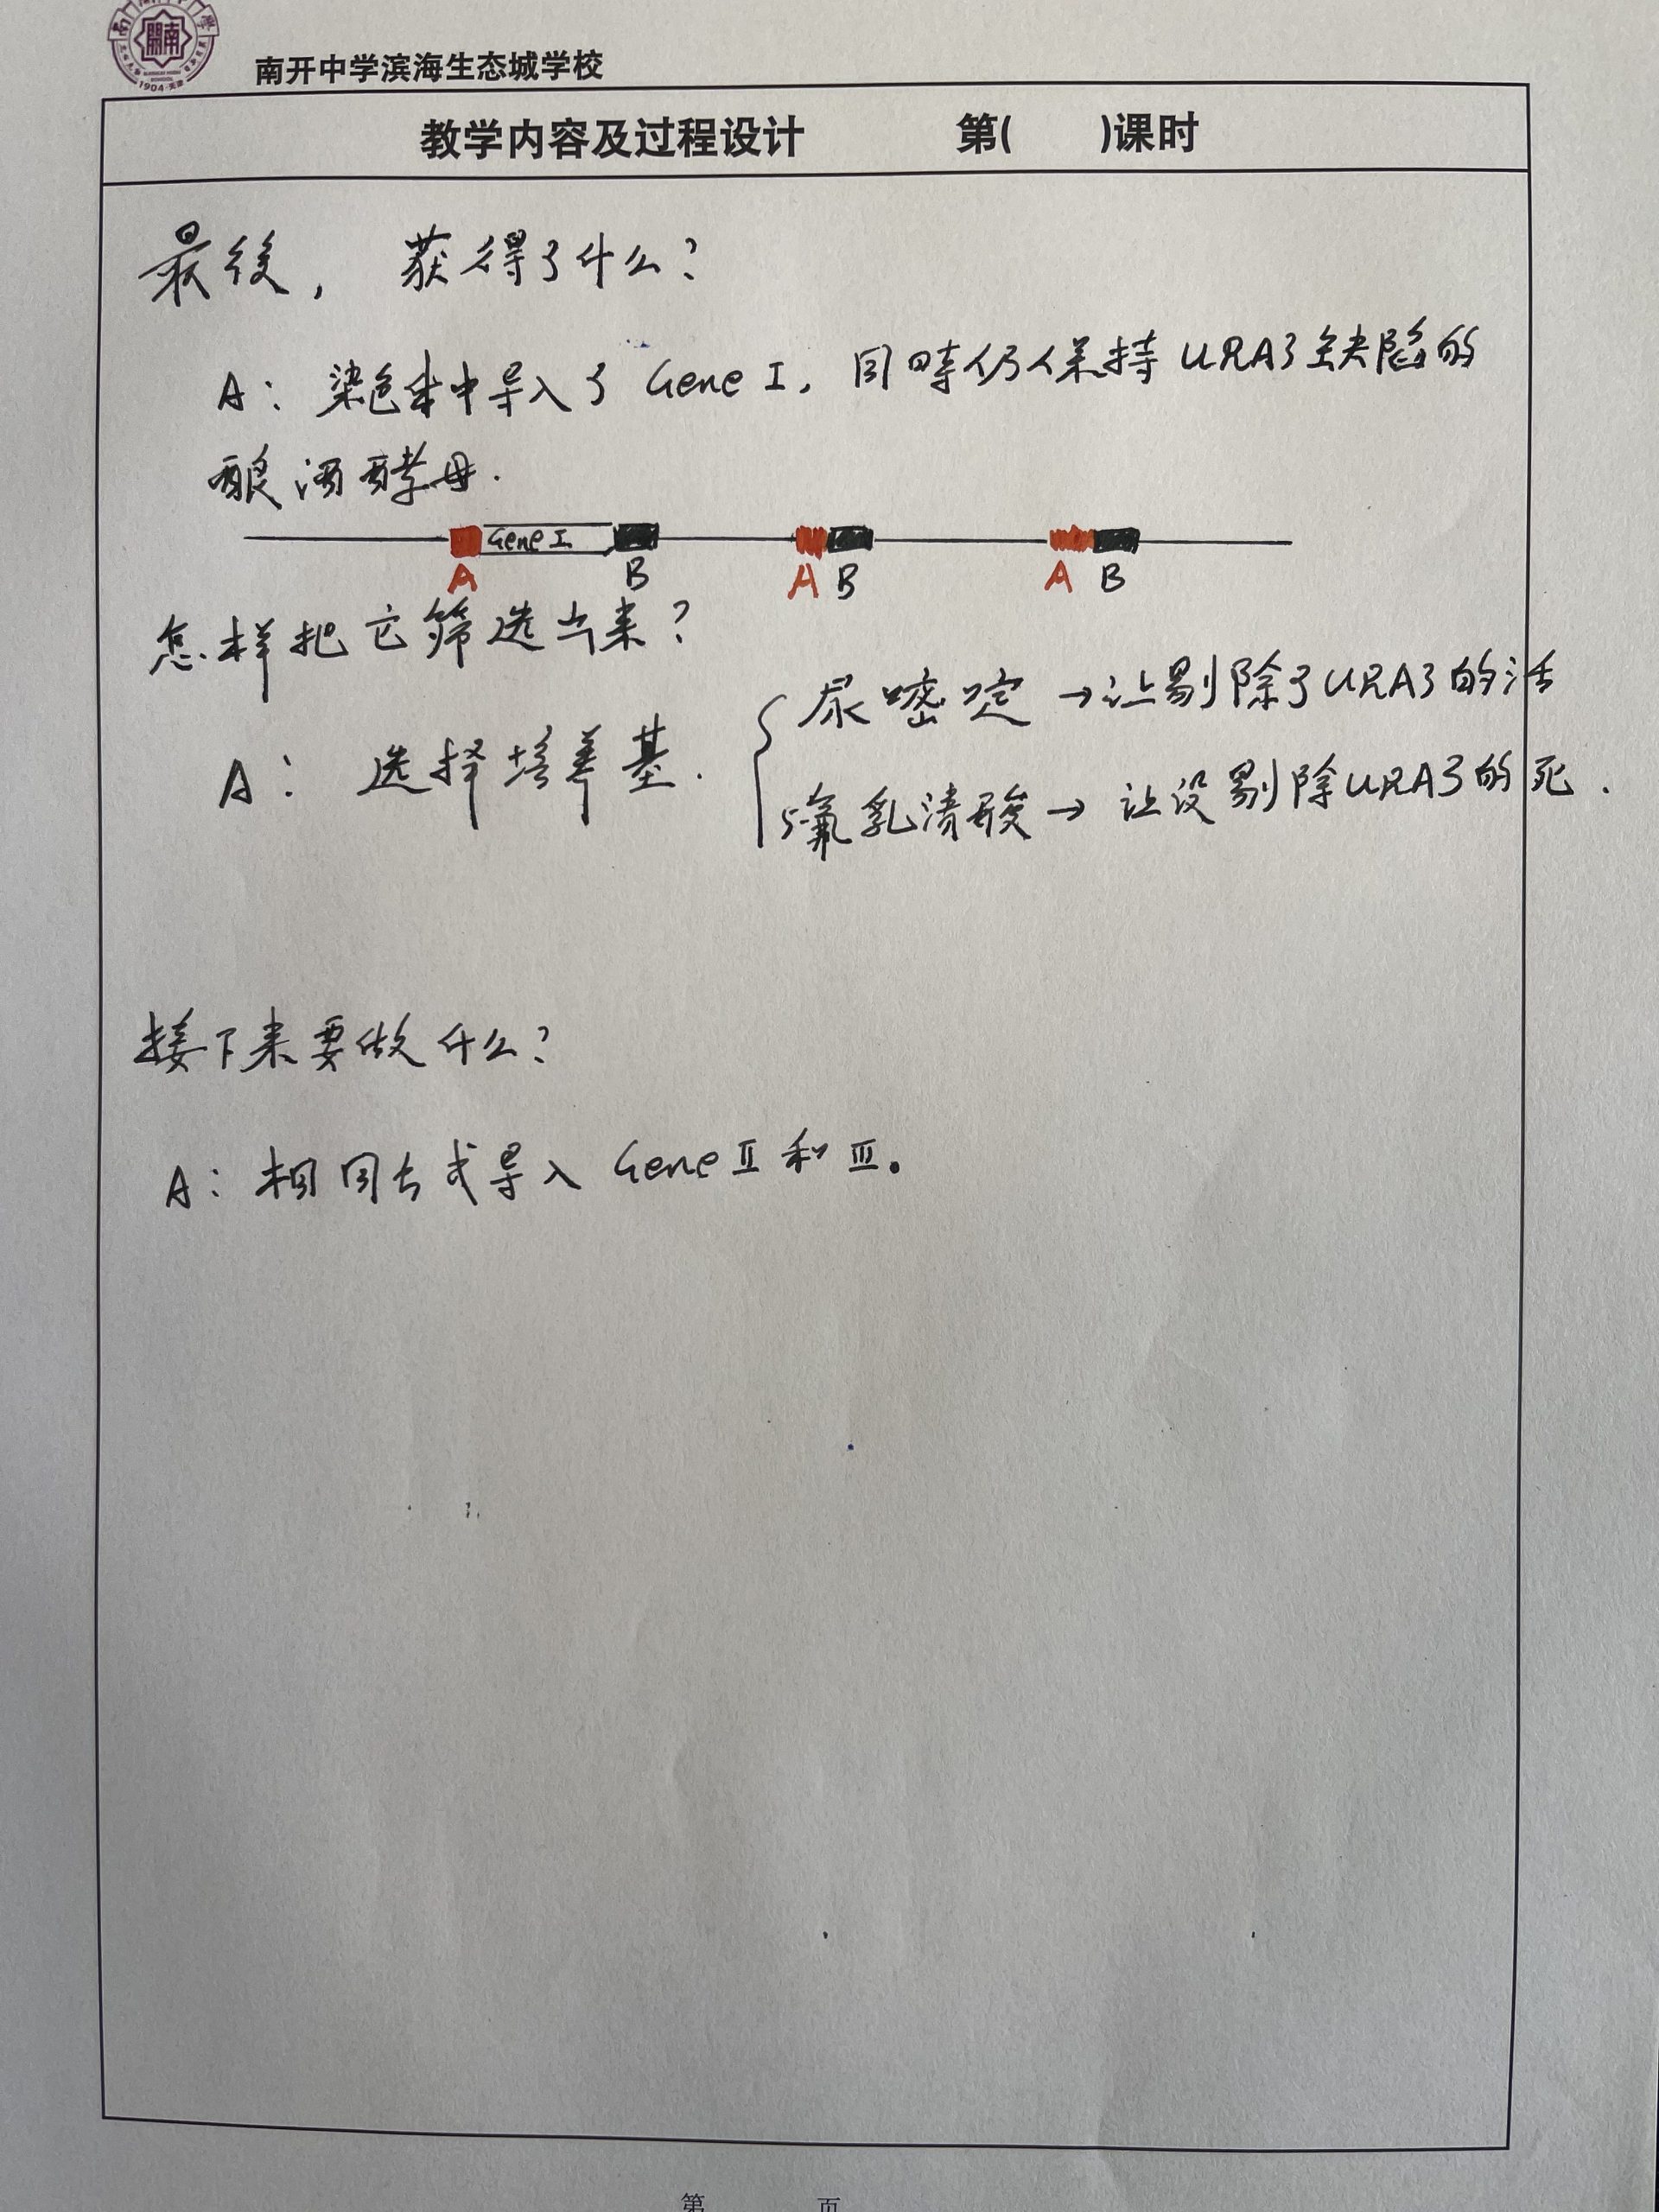 南开中学滨海生态城学校
教学内容及过程设计 第( )课时
最後, 获得了什么?
A: 染色体中导入了 Gene I, 同时仍保持URA3缺陷的
酿酒酵母.
Gene I
A B A B A B
怎样把它筛选出来?
A: 选择培养基. { 尿嘧啶 → 让剔除了URA3的活
5-氟乳清酸 → 让没剔除URA3的死.
接下来要做什么?
A: 相同方式导入 Gene II 和 III。
第 页